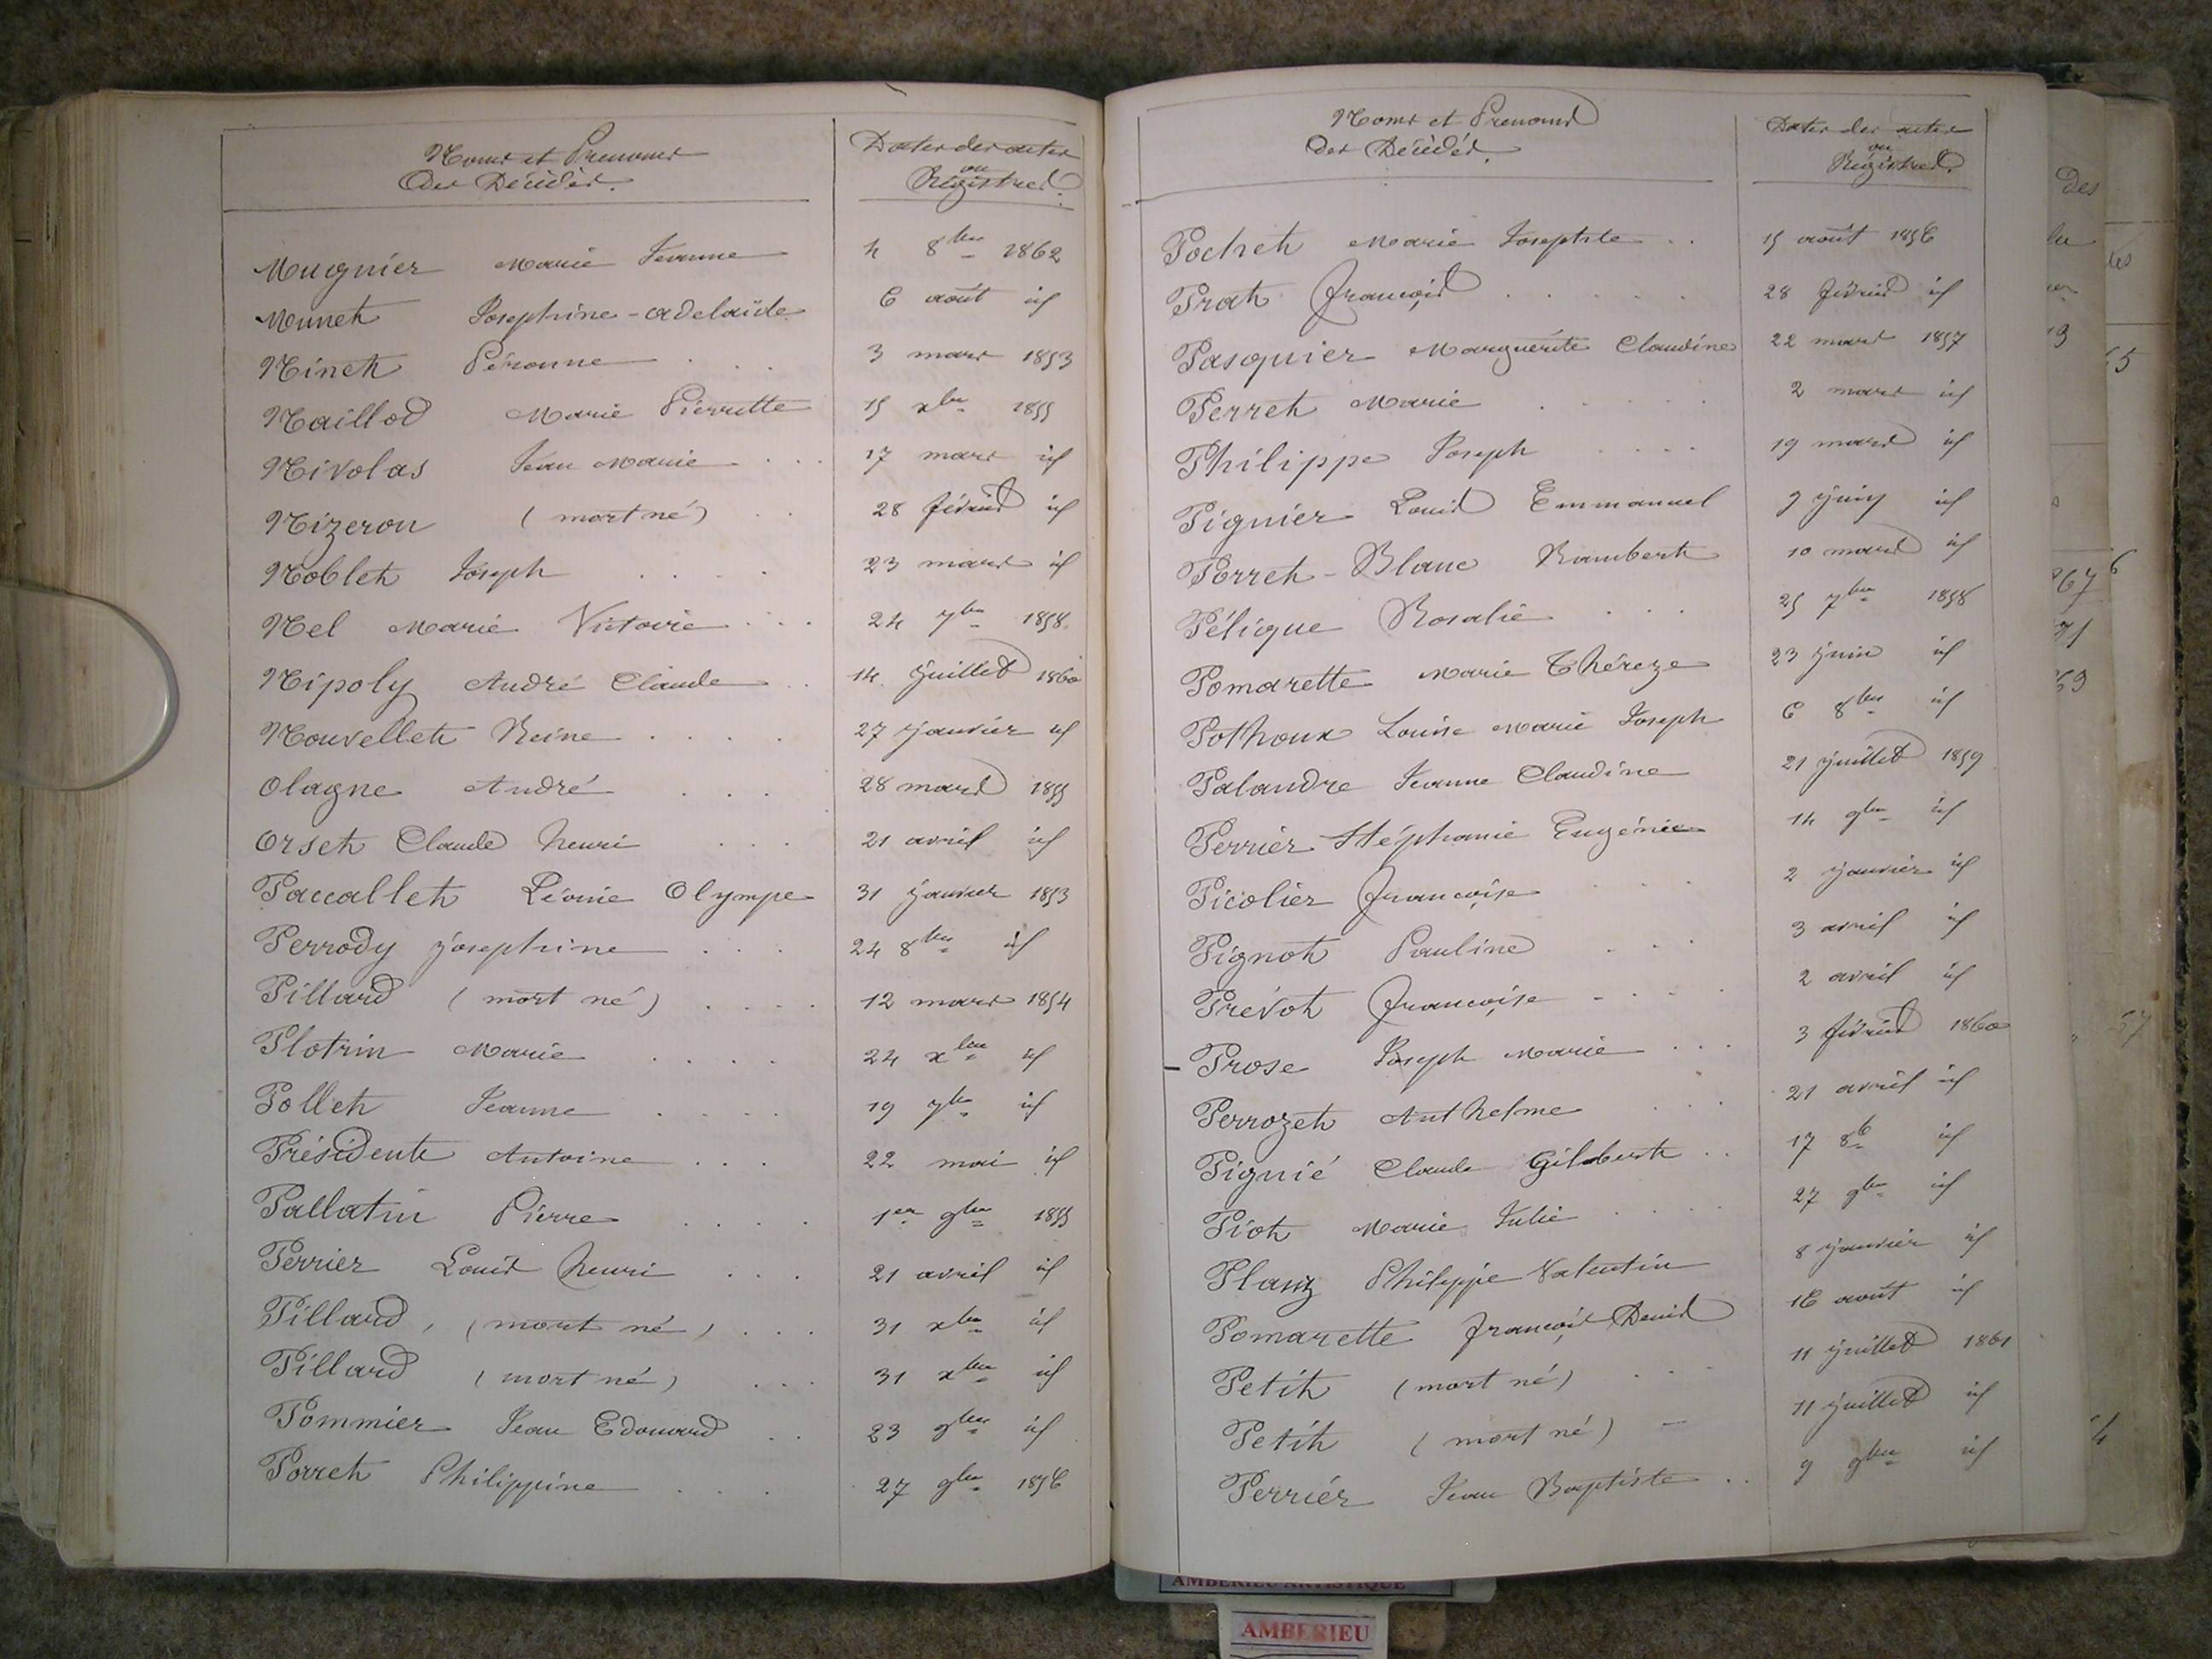 Noms et Prenoms
Des Décédés.
Dates des actes
ou
Régistres.
Mugnier Marie Jeanne 4 8bre 1862
Munet Josephine-adelaïde 6 août id
Ninet Péronne . . . 3 mars 1853
Naillod Marie Pierrette 15 xbre 1855
Nivolas Jean Marie . . . 17 mars id
Nizeron (mort né) . . 28 février id
Noblet Joseph . . . . 23 mars id
Nel Marie Victoire . . . 24 7bre 1858
Nipoly André Claude . . 14 juillet 1860
Nouvellet Reine . . . . 27 janvier id
Olagne André . . . 28 mars 1855
Orset Claude henri . . . 21 avril id
Paccallet Léonie Olympe 31 janvier 1853
Perrody josephine . . . 24 8bre id
Pillard (mort né) . . . . 12 mars 1854
Plotrin Marie . . . . 24 xbre id
Pollet Jeanne . . . . 19 7bre id
Présidente Antoine . . . 22 mai id
Pallatin Pierre . . . . 1er 9bre 1855
Perrier Louis henri . . . 21 avril id
Pillard, (mort né) . . . 31 xbre id
Pillard (mort né) . . . 31 xbre id
Pommier Jean Edouard . . 23 9bre id
Porret Philippine . . . 27 9bre 1856
Noms et Prenoms
Des Décédés.
Dates des actes
ou
Régistres.
Pochet Marie Josephte . . 15 août 1856
Prat françois . . . . . 28 février id
Pasquier Marguérite Claudine 22 mars 1857
Perret Marie . . . . 2 mars id
Philippe Joseph . . . . 19 mars id
Pignier Louis Emmanuel 9 juin id
Porret-Blanc Rambert 10 mars id
Péligue Rosalie . . . 25 7bre 1858
Pomarette Marie Théreze 23 juin id
Pothoux Louise Marie Joseph 6 8bre id
Palandre Jeanne Claudine 21 juillet 1859
Perrier Stéphanie Eugénie 14 9bre id
Picolier françoise . . . 2 janvier id
Pignot Pauline . . . 3 avril id
Prévot françoise . . . . 2 avril id
Prose Joseph Marie . . . 3 février 1860
Perrozet Anthelme . . . 21 avril id
Pignié Claude Gilbert . . 17 8b id
Piot Marie Julie . . . . 27 9bre id
Planz Philippe Valentin 8 janvier id
Pomarette françois Denis 16 août id
Petit (mort né) . . 11 juillet 1861
Petit (mort né) - 11 juillet id
Perriér Jean Baptiste . . 9 9bre id
des
AMBERIEU ARTISTIQUE
AMBERIEU